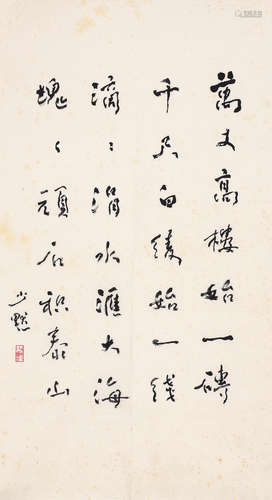 萬丈高樓始一磚
千尺白綾始一綫
滴〻涓水匯大海
塊〻頑石积泰山
少默